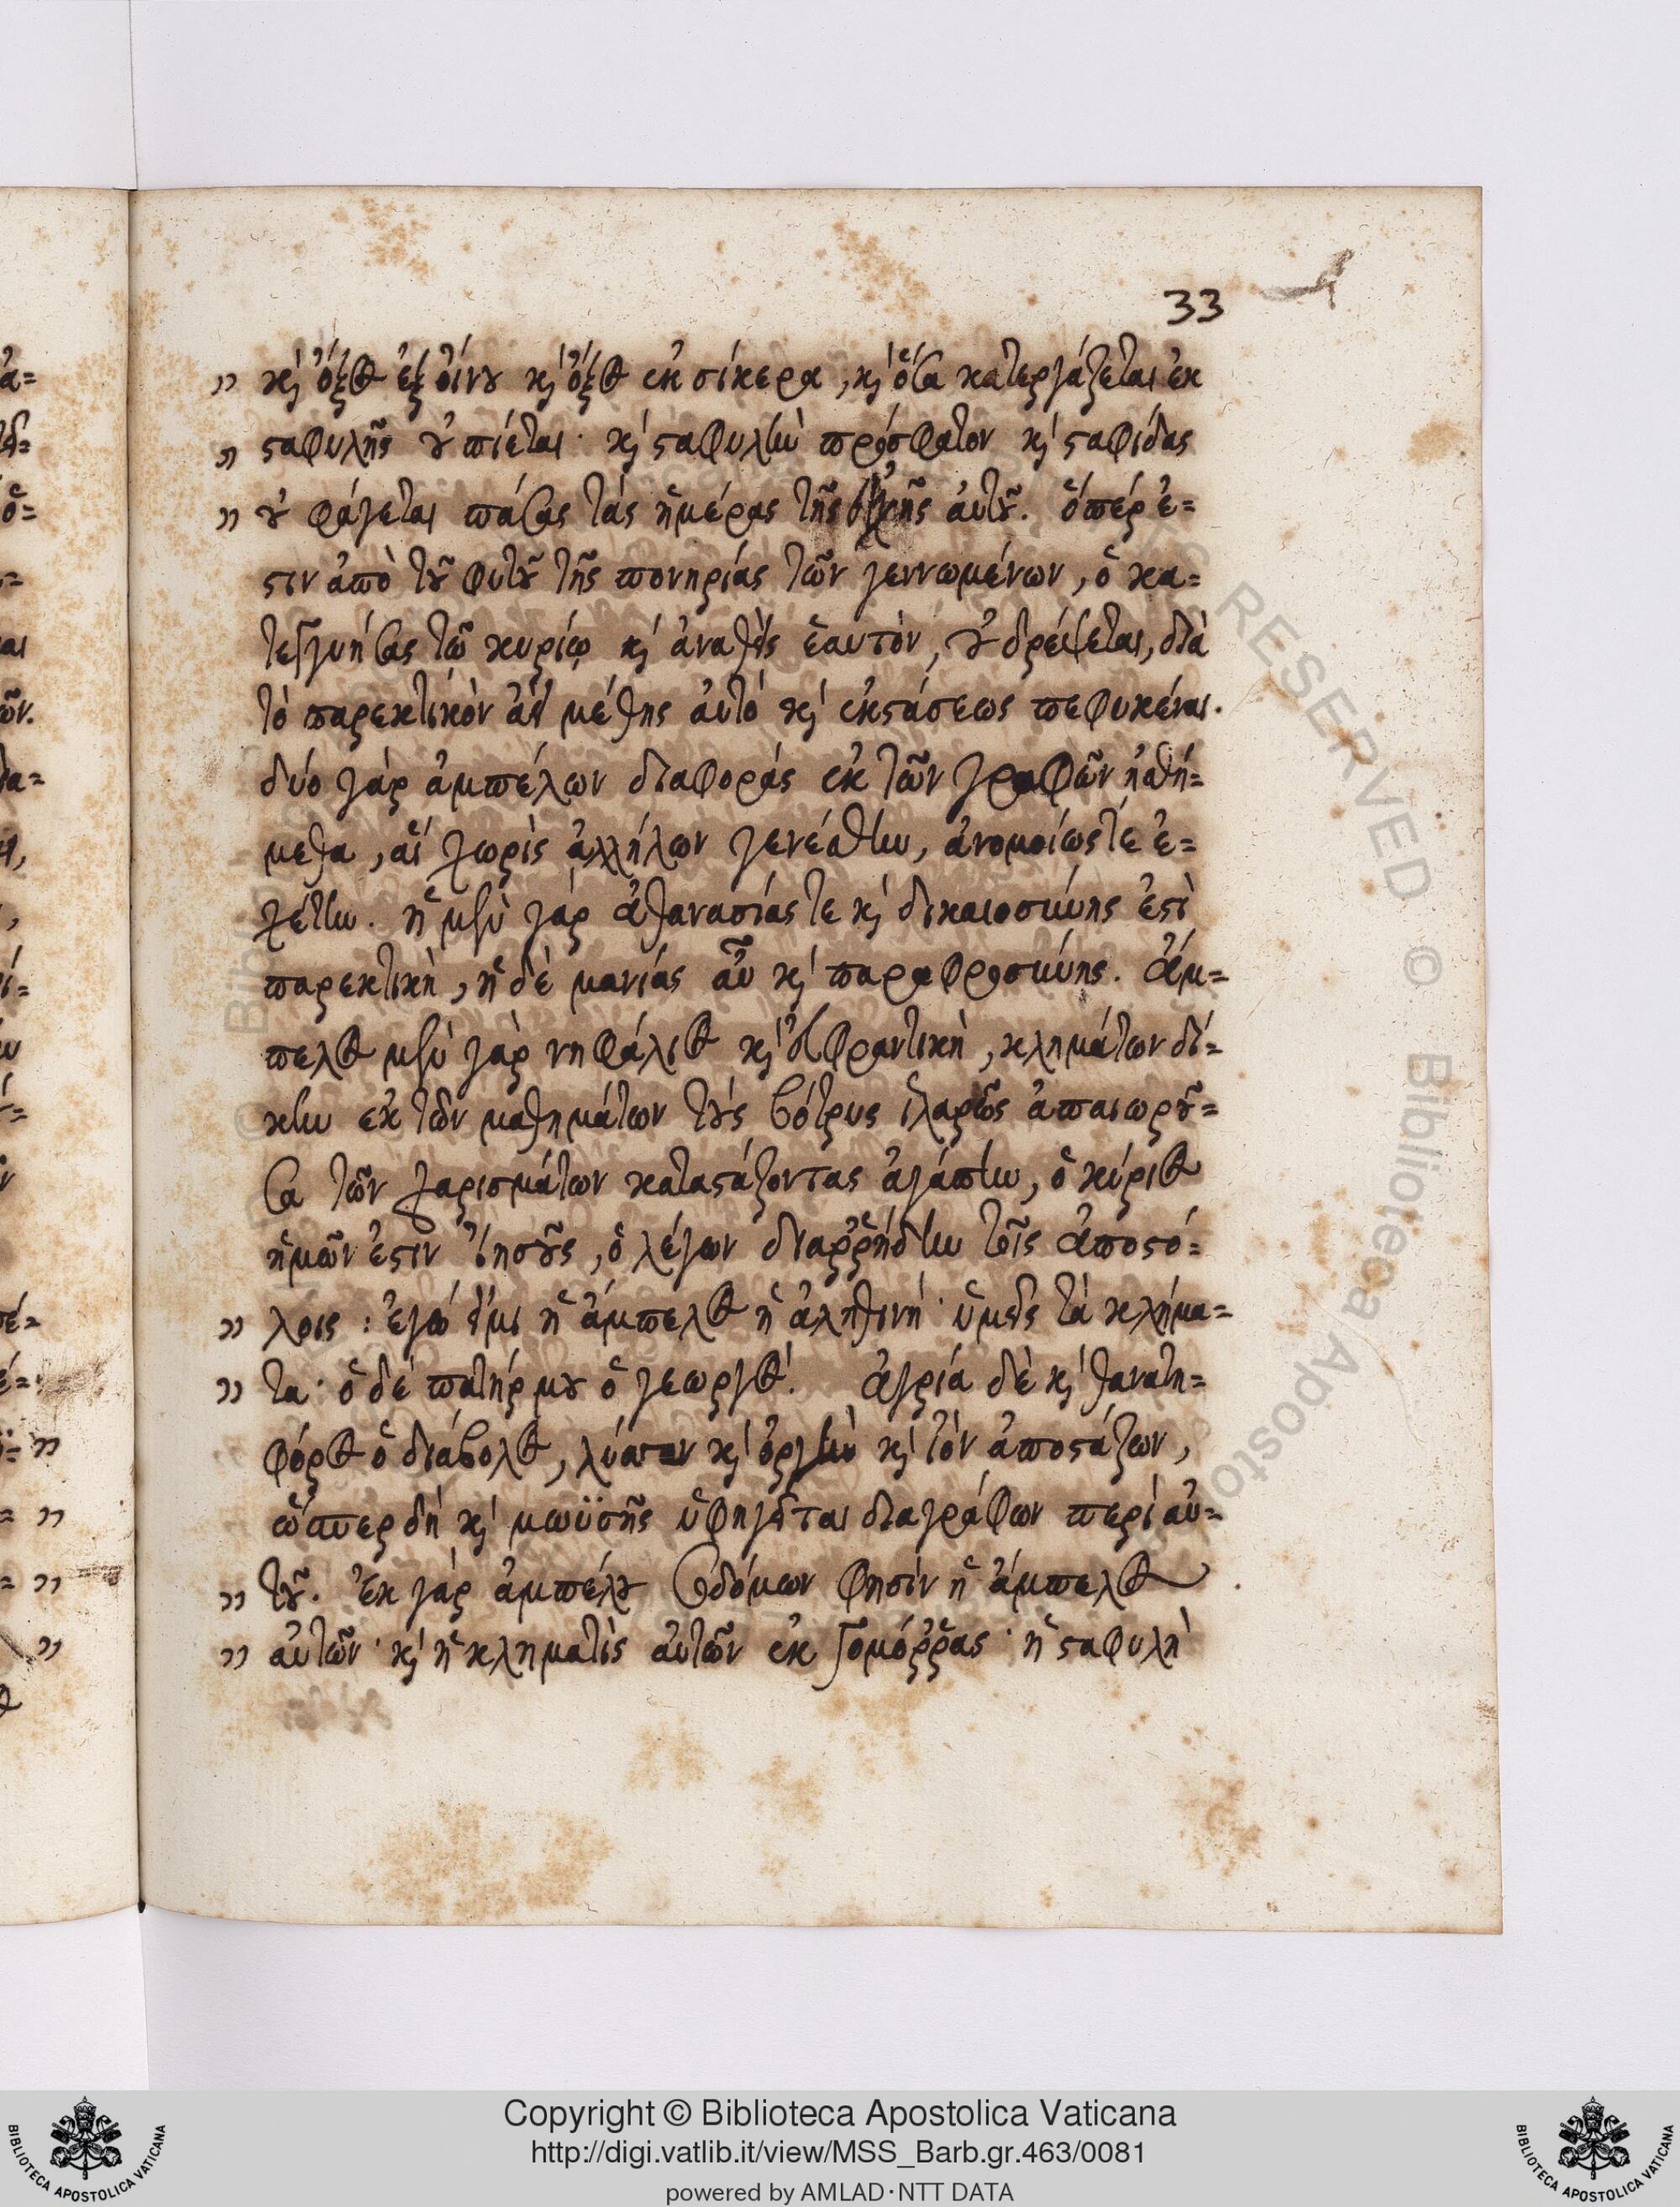 33
» κὶ ὄξος ἐξ οἴνου κὶ ὄξος ἐκ σίκερα, κὶ ὅσα κατεργάζεται ἐκ
» σταφυλῆς οὐ πίεται· κὶ σταφυλὴν πρόσφατον κὶ σταφίδας
» οὐ φάγεται πάσας τὰς ἡμέρας τῆς εὐχῆς αὐτοῦ. ὅπέρ ἐ=
στιν ἀπὸ τοῦ φυτοῦ τῆς πονηρίας τῶν γεννωμένων, ὁ κα=
τεγγυήσας τῶ κυρίῳ κὶ ἀναθεὶς ἑαυτὸν, οὐ δρέψεται, διὰ
τὸ παρεκτικὸν ἀεὶ μέθης αὐτὸ κὶ ἐκστάσεως πεφυκέναι.
δύο γὰρ ἀμπέλων διαφορὰς ἐκ τῶν γραφῶν ᾐσθή=
μεθα, αἳ χωρὶς ἀλλήλων γενέσθην, ἀνομοίως τὲ ἐ=
χέτην. ἡ μὲν γὰρ ἀθανασίας τε κὶ δικαιοσύνης ἐστὶ
παρεκτικὴ, ἡ δὲ μανίας αὖ κὶ παραφροσύνης. ἄμ=
πελος μὲν γὰρ νηφάλιος κὶ εὐφραντικὴ, κλημάτων δί=
κην ἐκ τῶν μαθημάτων τοὺς βότρυς ἱλαρῶς ἀπαιωροῦ=
σα τῶν χαρισμάτων καταστάζοντας ἀγάπην, ὁ κύριος
ἡμῶν ἐστιν ἰησοῦς, ὁ λέγων διαῤῥήδην τοῖς ἀποστό=
» λοις: ἐγώ εἰμι ἡ ἄμπελος ἡ ἀληθινή· ὑμεῖς τὰ κλήμα=
» τα· ὁ δὲ πατήρ μου ὁ γεωργός. ἀγρία δὲ κὶ θανατη=
φόρος ὁ διάβολος, λύσσαν κὶ ὀργὴν κὶ ἰὸν ἀποστάζων,
ὥσπερ δὴ κὶ μωϋσῆς ὑφηγεῖται διαγράφων περὶ αὐ=
» τοῦ. Ἐκ γὰρ ἀμπέλου Σοδόμων φησὶν ἡ ἄμπελος
» αὐτῶν· κὶ ἡ κληματὶς αὐτῶν ἐκ Γομόῤῥας· ἡ σταφυλὴ
Copyright © Biblioteca Apostolica Vaticana
http://digi.vatlib.it/view/MSS_Barb.gr.463/0081
powered by AMLAD·NTT DATA